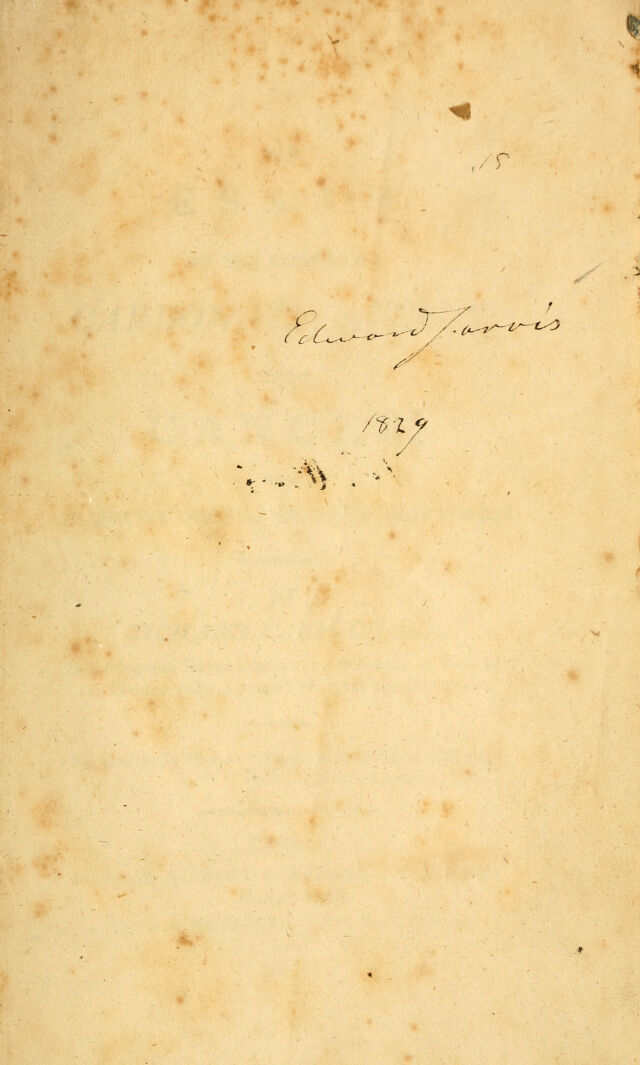 .15
Edward Jarvis
1829